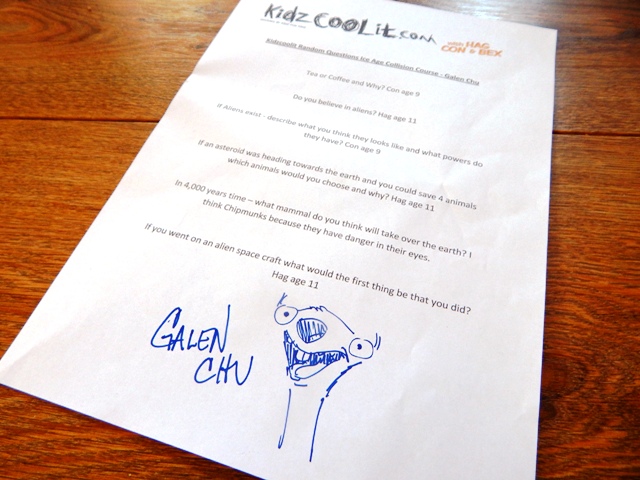 Kidz COOLit.com
with HAG
CON & BEX
Kidzcoolit Random Questions Ice Age Collision Course - Galen Chu
Tea or Coffee and Why? Con age 9
Do you believe in aliens? Hag age 11
If Aliens exist - describe what you think they looks like and what powers do
they have? Con age 9
If an asteroid was heading towards the earth and you could save 4 animals
which animals would you choose and why? Hag age 11
In 4,000 years time – what mammal do you think will take over the earth? I
think Chipmunks because they have danger in their eyes.
If you went on an alien space craft what would the first thing be that you did?
Hag age 11
GALEN
CHU